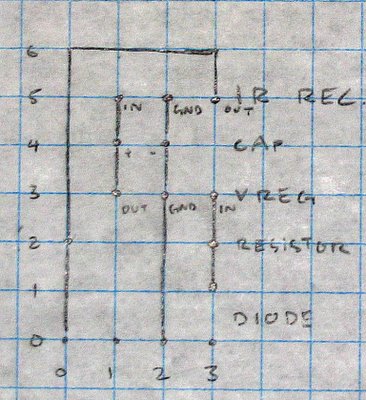 6
5 IN GND OUT IR REC.
4 + - CAP
3 OUT GND IN VREG
2 RESISTOR
1
DIODE
0
0 1 2 3